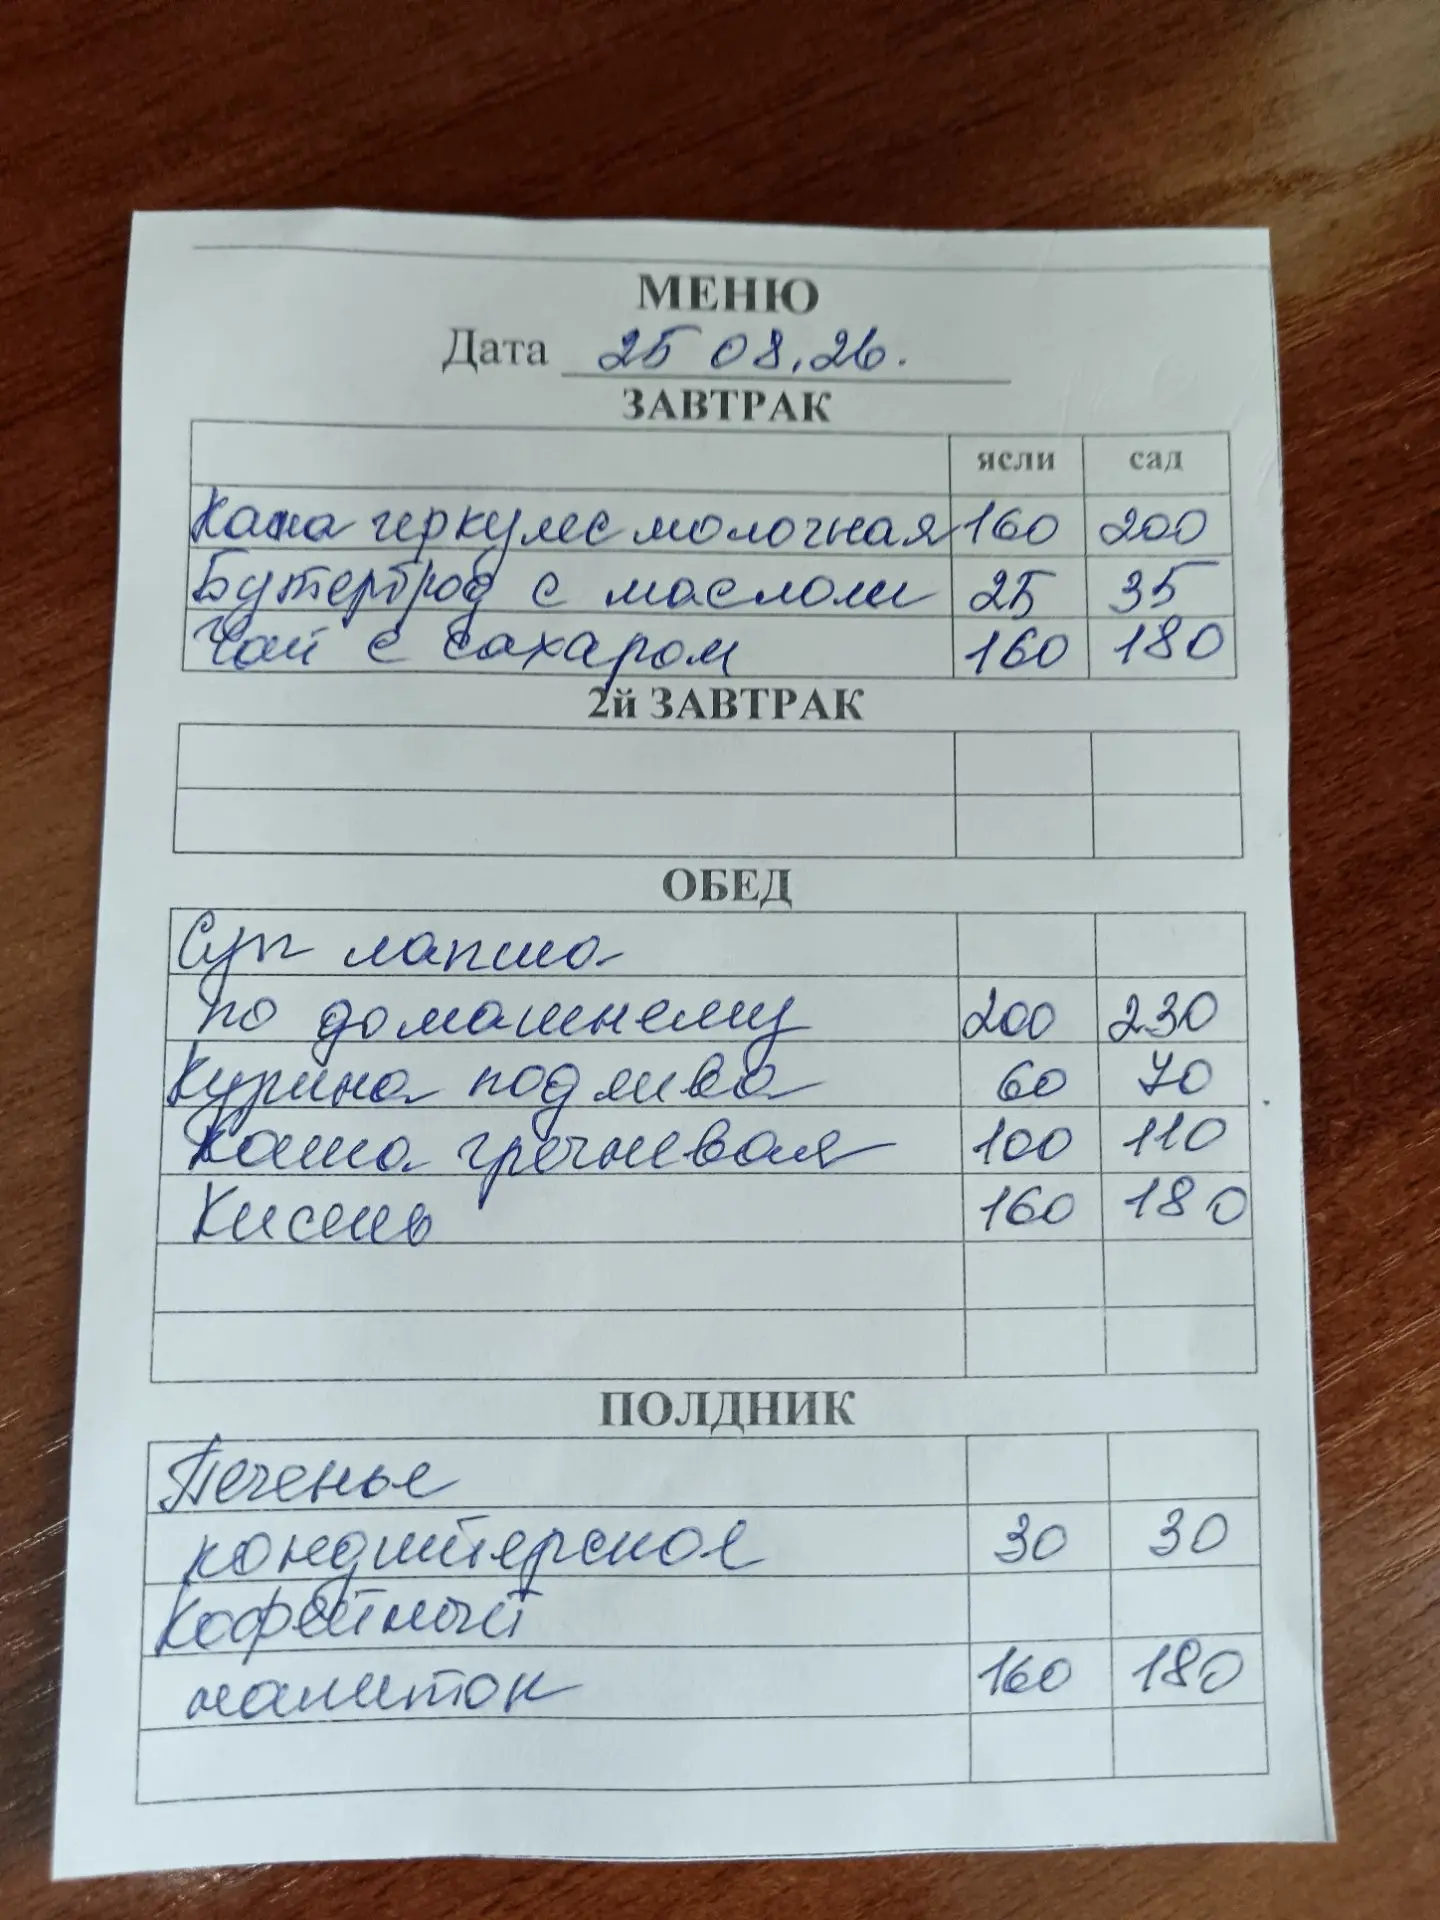 МЕНЮ
Дата 25 08.26.
ЗАВТРАК
ясли сад
Каша геркулес молочная 160 200
Бутерброд с маслом 25 35
Чай с сахаром 160 180
2й ЗАВТРАК
ОБЕД
Суп лапша
по домашнему 200 230
Курина подлива 60 70
Каша гречневая 100 110
Кисель 160 180
ПОЛДНИК
Печенье
кондитерское 30 30
Кофейный
напиток 160 180